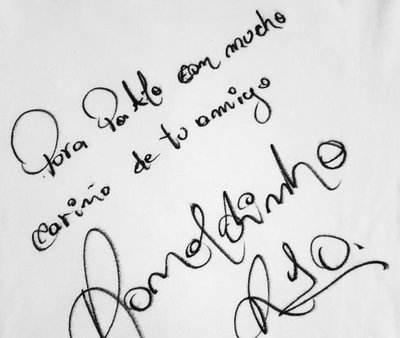 Para Pablo com mucho
cariño de tu amigo
Ronaldinho
R10.